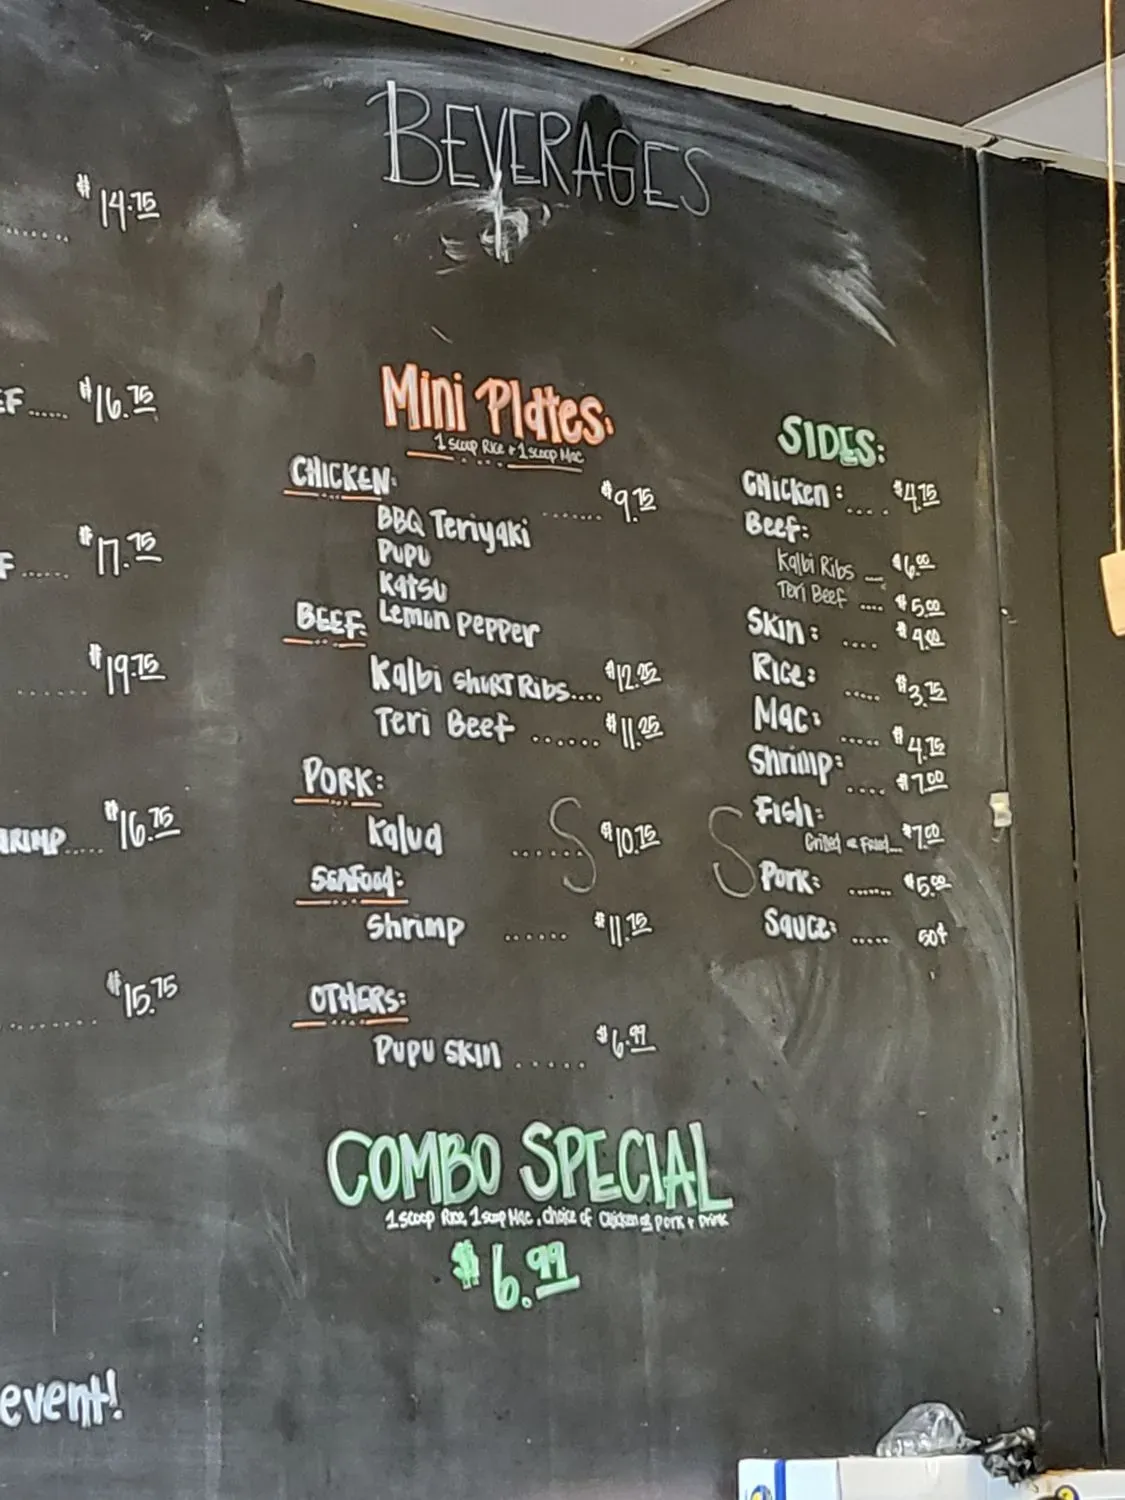 BEVERAGES
$14.75
EF ...... $16.75
F ...... $17.75
...... $19.75
HRIMP .... $16.75
........ $15.75
event!
Mini Plates:
1 Scoop Rice & 1 scoop Mac
CHICKEN: ...... $9.75
BBQ Teriyaki
PUPU
Katsu
Lemon Pepper
BEEF:
Kalbi Short Ribs.... $12.25
Teri Beef ...... $11.25
PORK:
Kalua ...... S $10.75
SEAFood:
Shrimp ...... $11.75
OTHERS:
PUPU SKIN ...... $6.99
SIDES:
CHicken: .... $4.75
Beef:
Kalbi Ribs .... $6.00
Teri Beef .... $5.00
Skin: .... $9.00
Rice: ..... $3.75
Mac: ..... $4.75
Shrimp: .... $7.00
Fish:
Grilled or Fried... $7.00
S Pork: ...... $5.00
Sauce: ..... 50¢
COMBO SPECIAL
1 scoop Rice, 1 scoop Mac, choice of Chicken or Pork + Drink
$6.99